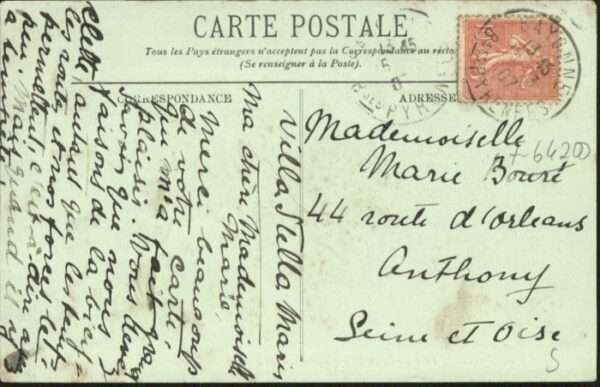 CARTE POSTALE
Tous les Pays étrangers n'acceptent pas la Correspondance au recto
(Se renseigner à la Poste).
CORRESPONDANCE
ADRESSE
Villa Stella Maris
Ma chère Mademoiselle
Marie,
Merci beaucoup
de votre carte,
qui m'a fait gran
plaisir. Vous
savez que nous
faisons de la bicy
clette autant que les
les routes et nos forces le
permettent, c'est à dire
peu. Mais quand il
Mademoiselle
Marie Bouré
44 route d'Orleans
Anthony
Seine et Oise
BAYONNE